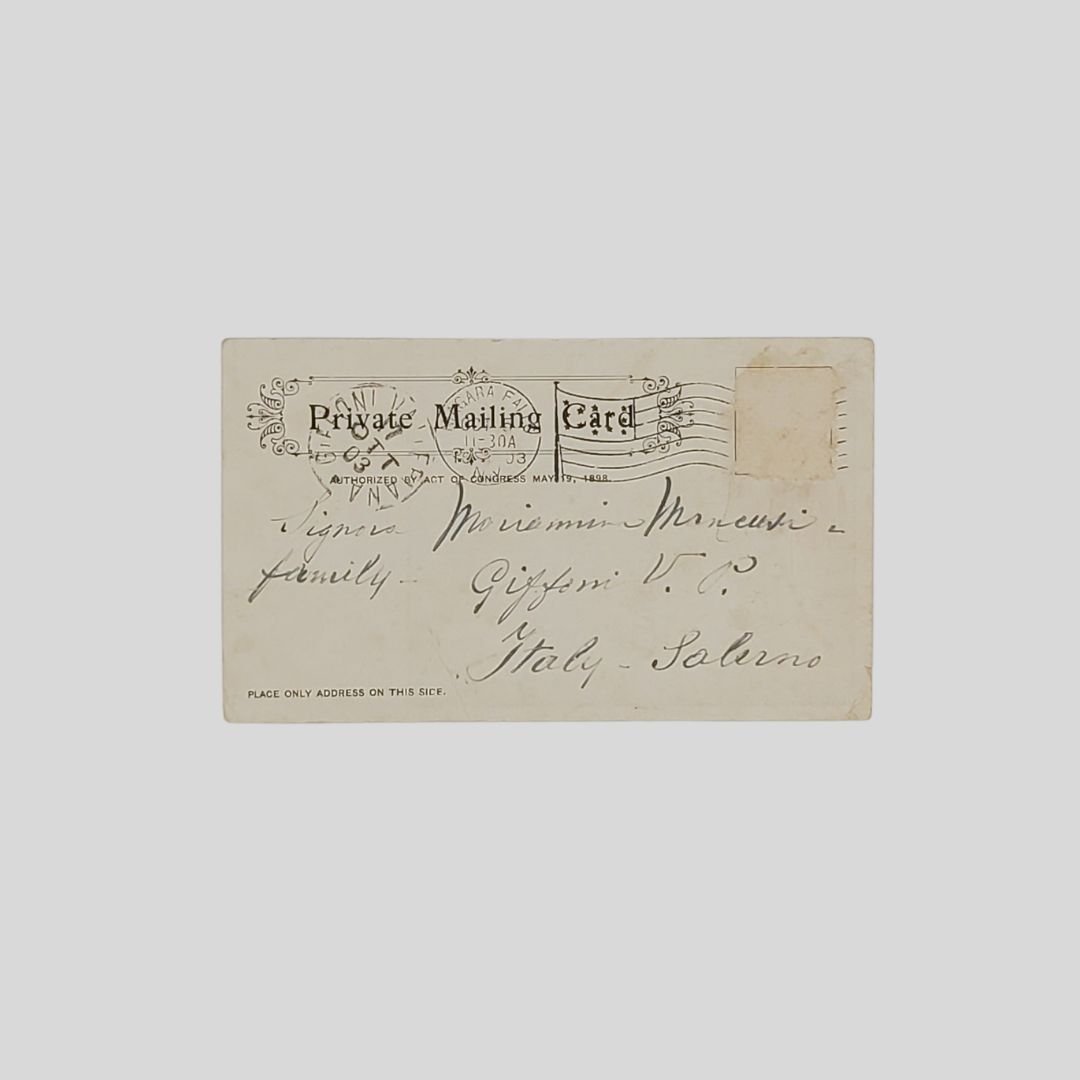 Private Mailing Card
AUTHORIZED BY ACT OF CONGRESS MAY 19, 1898.
GIFFONI V
OTT
03
ANA
GARA FA
11-30A
03
N.Y.
Signora Mariannina Mancusi
family -
Giffoni V. P.
Italy - Salerno
PLACE ONLY ADDRESS ON THIS SIDE.